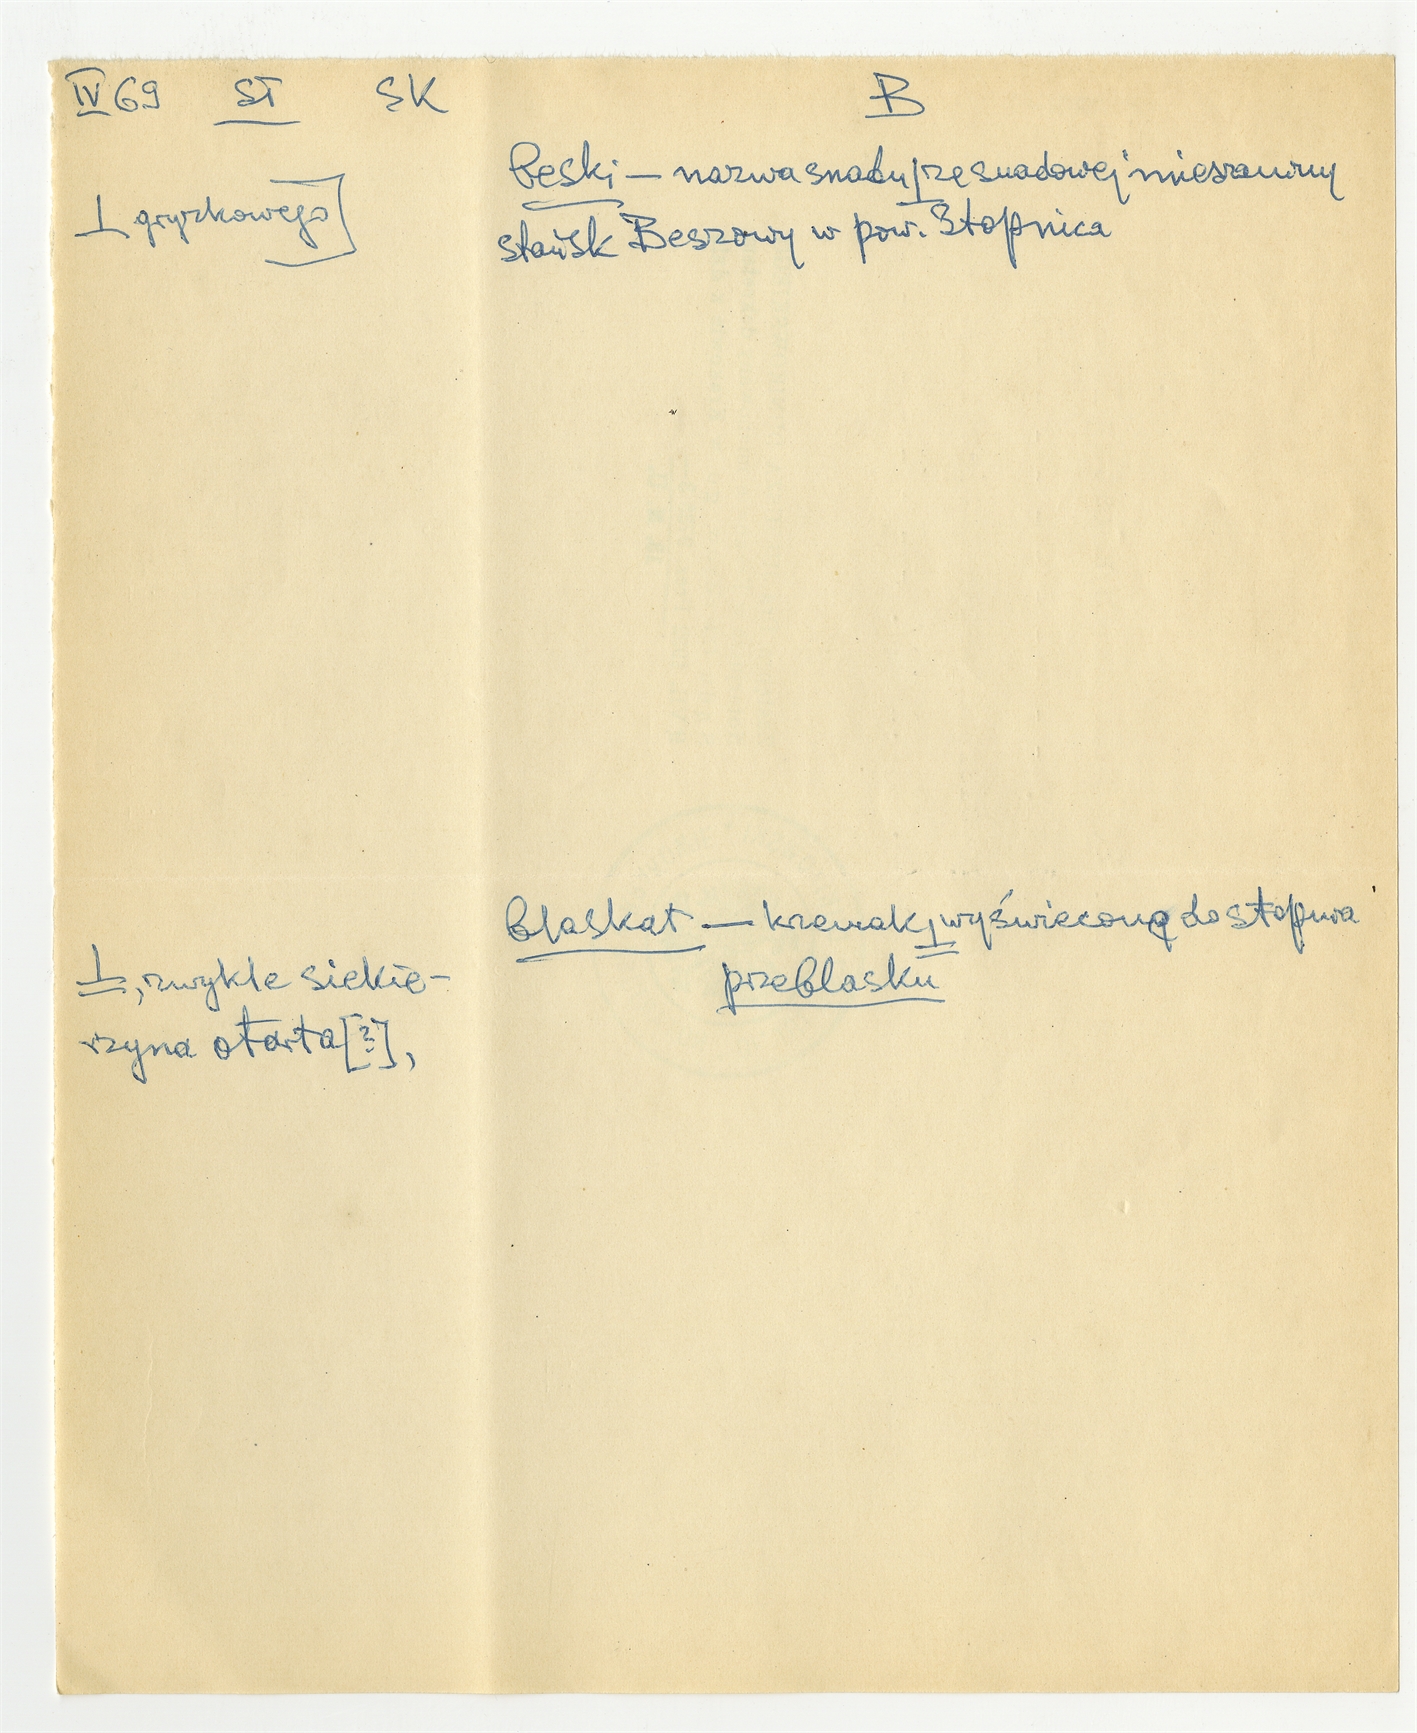 IV 69 ST SK
B
Beski — nazwa snadu ⊥ ze snadowej mieszaniny
stańsk Beszowy w pow. Stopnica
⊥ gryzkowego]
blaskat — krzemak ⊥ wyświeconą do stopnia
przeblasku
⊥, zwykle siekie-
rzyna otarta [?],